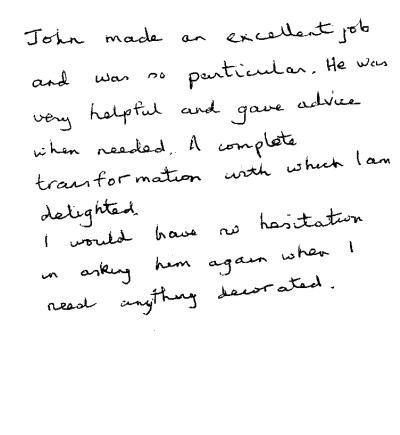 John made an excellent job
and was so particular. He was
very helpful and gave advice
when needed. A complete
transformation with which I am
delighted.
I would have no hesitation
in asking him again when I
need anything decorated.